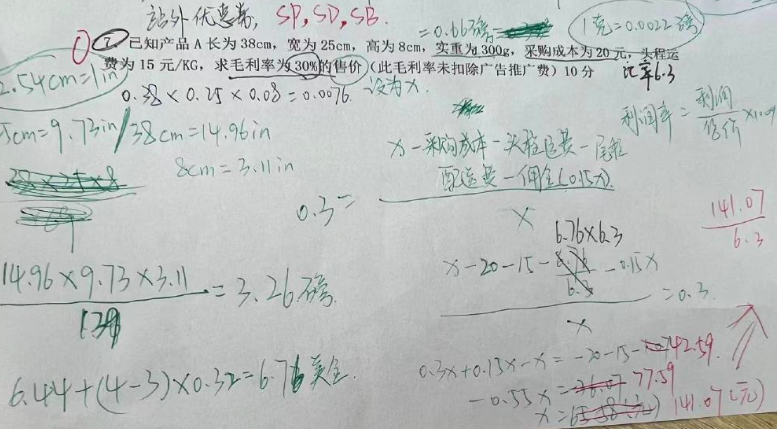 站外优惠券, SP, SD, SB.
= 0.66磅 1克=0.0022磅
7. 已知产品 A 长为 38cm, 宽为 25cm, 高为 8cm, 实重为 300g, 采购成本为 20 元, 头程运
费为 15 元/KG, 求毛利率为 30%的售价 (此毛利率未扣除广告推广费) 10 分
比率6.3
2.54cm=1in
0.38 × 0.25 × 0.08 = 0.0076 设为x.
5cm=9.73in/38cm=14.96in
8cm=3.11in
利润率=利润/售价×100%
x-采购成本-头程运费-尾程
配送费-佣金(0.15x)
0.3=
x
141.07
6.3
6.76×6.3
x-20-15- -0.15x
=0.3
x
14.96×9.73×3.11
=3.26磅.
139
0.3x+0.15x-x=-20-15-42.59.
6.44+(4-3)×0.32=6.76美金.
-0.55x= 77.59
x= 141.07(元)